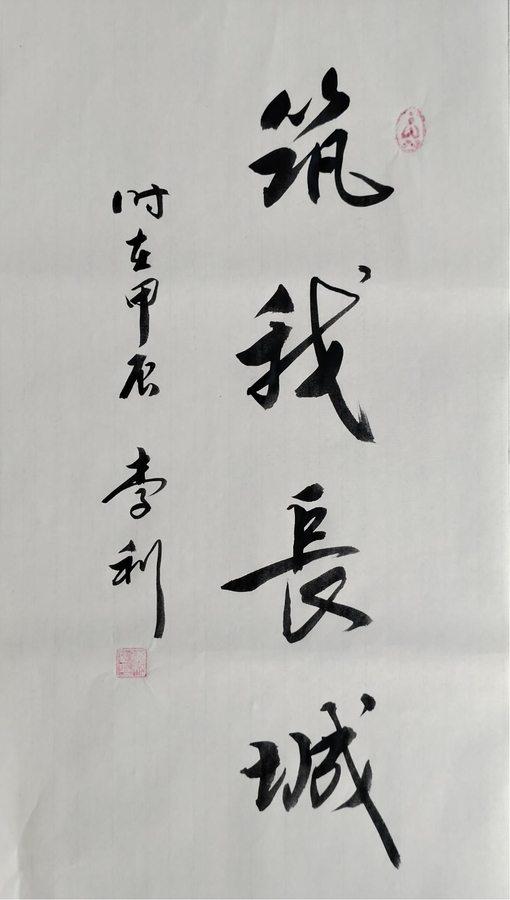 筑我長城
时在甲辰 李利